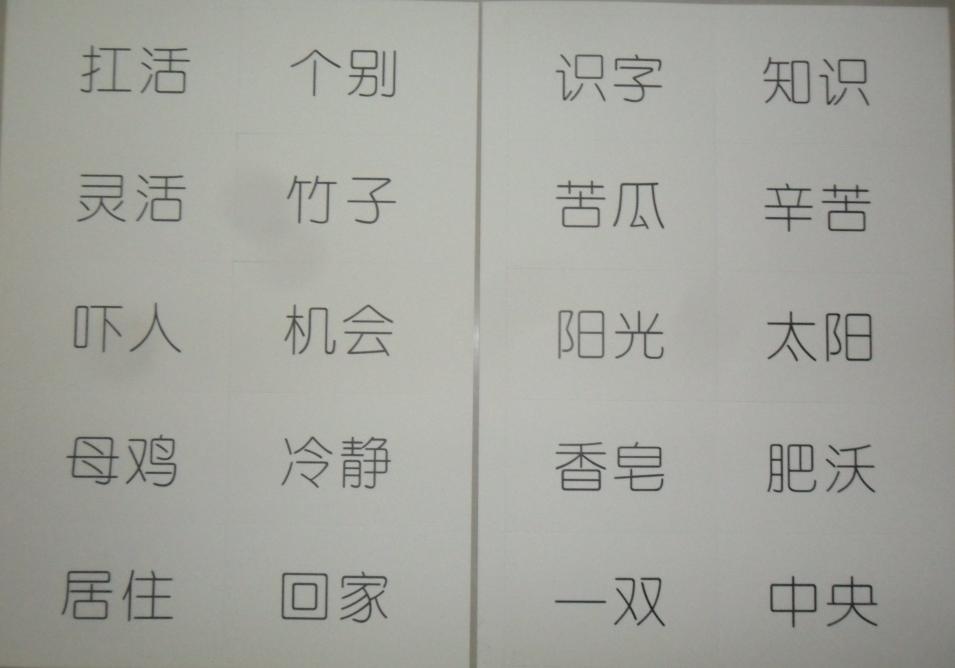 扛活 个别
灵活 竹子
吓人 机会
母鸡 冷静
居住 回家
识字 知识
苦瓜 辛苦
阳光 太阳
香皂 肥沃
一双 中央